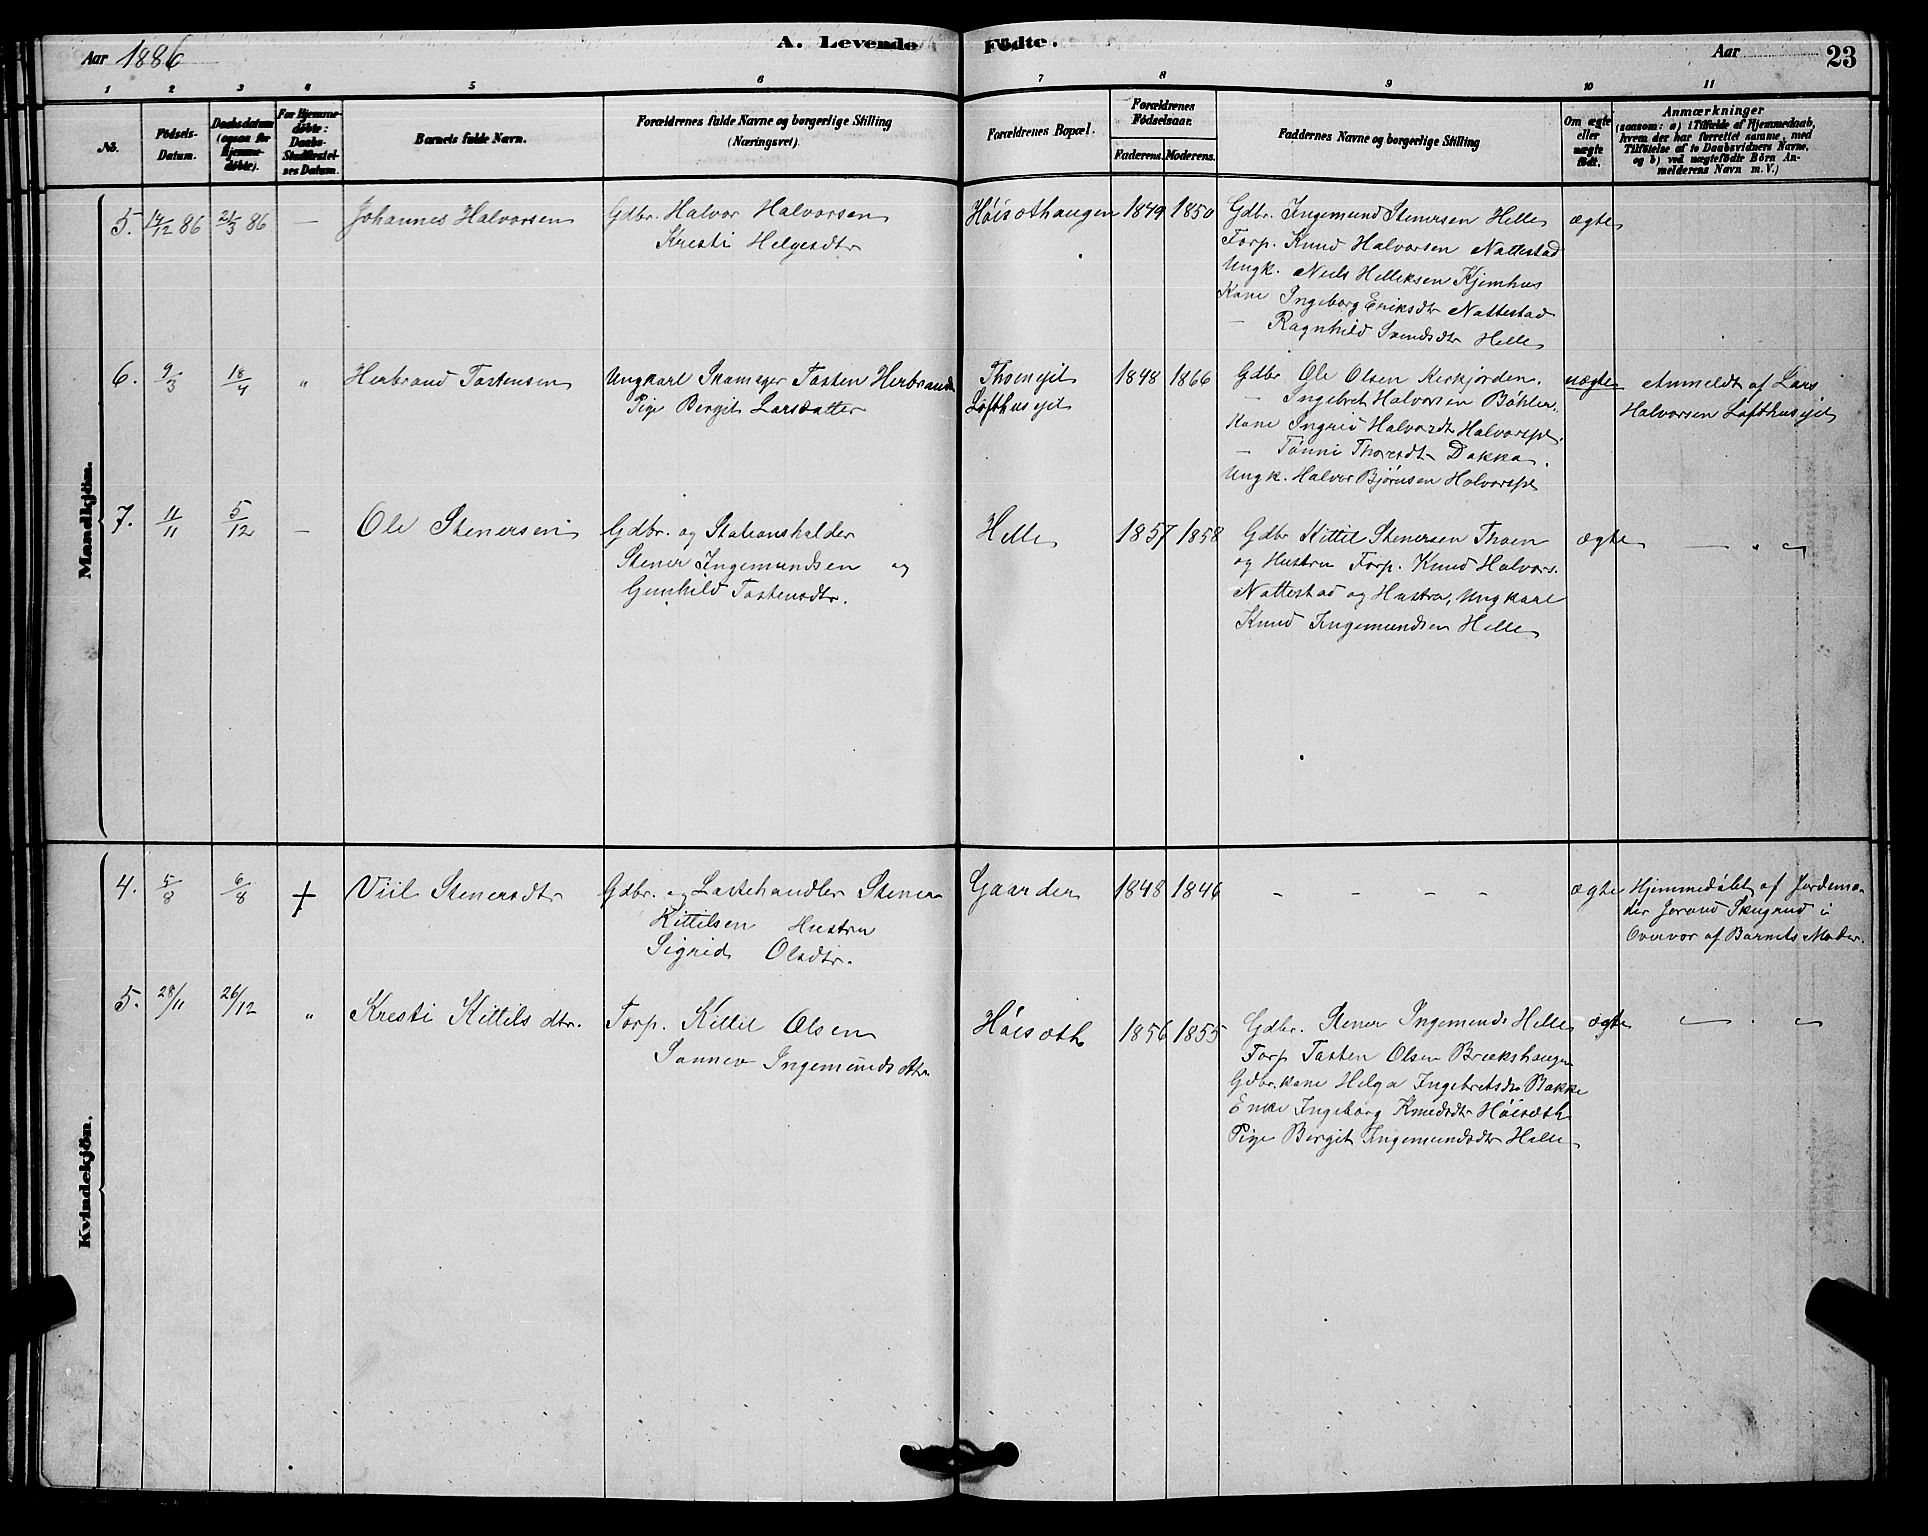 Aar 1886
A. Levende Födte.
Aar 23
1 2 3 4 5 6 7 8 9 10 11
No.
Födsels-
Datum.
Daabsdatum
(ogsaa for
Hjemme-
döbte).
For Hjemme-
döbte:
Daabs-
Stadfæstel-
ses Datum.
Barnets fulde Navn.
Forældrenes fulde Navne og borgerlige Stilling
(Næringsvei).
Forældrenes Bopæl.
Forældrenes
Födselsaar.
Faderens. Moderens.
Faddernes Navne og borgerlige Stilling
Om ægte
eller
uægte
födt.
Anmærkninger
(saasom: a) i Tilfælde af Hjemmedaab,
hvem der har forrettet samme, med
Tilföielse af to Daabsvidners Navne,
og b) ved uægtefödte Börn An-
melderens Navn m. V.)
Mandkjön.
5. 14/12 86 21/3 86 — Johannes Halvorsen
Gdbr. Halvor Halvorsen
Kresti Helgesdtr
Höisæthaugen 1849 1850
Gdbr. Ingemund Stenersen Helle
Forp. Knud Halvorsen Nattestad
Ungk. Niels Helleksen Kjemhus
Kone Ingeborg Eriksdtr Nattestad
— Ragnhild Svendsdtr Helle
ægte
6. 9/3 18/4 " Herbrand Tostensen
Ungkarl Skomager Tosten Herbrands
Pige Bergit Larsdatter
Thoenejet
Lofthusejet
1848 1866
Gdbr Ole Olsen Kirkjorden.
— Ingebret Halvorsen Böhler
Kone Ingrid Halvorsdtr Halvorspl.
— Tönni Thoresdtr Dokka.
Ungk. Halvor Björnsen Halvorspl
uægte
Anmeldt af Lars
Halvorsen Lofthusejet
7. 11/11 5/12 — Ole Stenersen
Gdbr. og Stationsholder
Stener Ingemundsen og
Gunhild Tostensdtr.
Helle 1857 1858
Gdbr Kittil Stenersen Thoen
og Hustru Forp. Knud Halvors.
Nattestad og Hustru, Ungkarl
Knud Ingemundsen Helle
ægte — " —
Kvindekjön.
4. 5/8 6/8 + Viil Stenersdtr
Gdbr. og Lastehandler Stener
Kittilsen Hustru
Sigrid Olsdtr.
Gaarder 1848 1846 - - - -
ægte
Hjemmedöbt af Jordemo-
der Jorand Skugrud i
Overvær af Barnets Moder.
5. 28/11 26/12 " Kresti Kittilsdtr.
Forp. Kittil Olsen
Sønnev Ingemundsdtr.
Höisæth 1856 1855
Gdbr. Stener Ingemunds Helle
Forp Tosten Olsen Brækshaugen
Gdbr.kone Helga Ingebretsdtr Bakke
Enke Ingeborg Knudsdtr Höisæth
Pige Bergit Ingemundsdtr Helle
ægte — " —